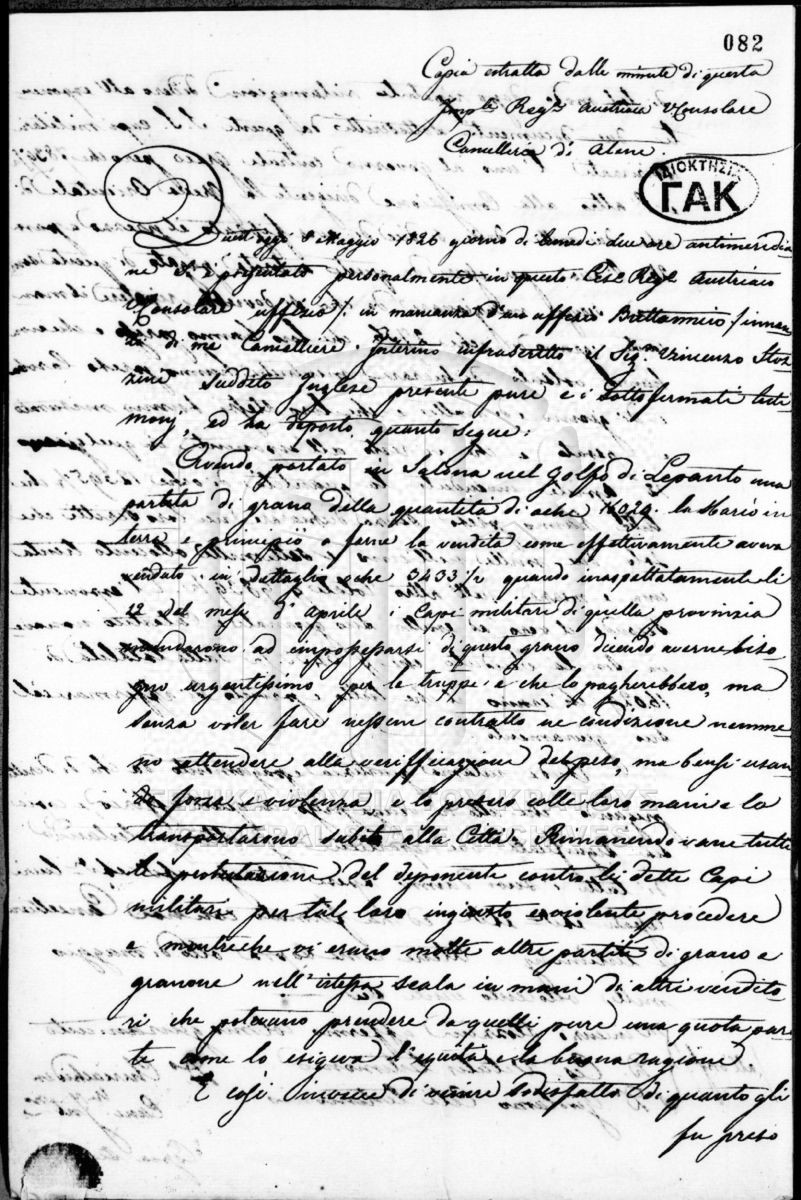 082
Copia estratta dalle minute di questa
Imple Rege Austriaca VConsolare
Cancelleria di Atene.
ΙΔΙΟΚΤΗΣΙΑ
ΓΑΚ
Quest'oggi 8 Maggio 1826 giorno di Lunedi due ore antimeridia
ne si è presentato personalmente in questo Ces. Rege Austriaco
VConsolare uffizio /: in mancanza d'un offizio Brittannico / innan
ti di me Cancelliere Interino infrascritto il Sigr Vincenzo
suddito Inglese presente pure e i sottofermati testi
monj, ed ha deposto quanto segue:
Avendo portato in Salona nel golfo di Lepanto una
partita di grano della quantità di oche 16029. la in
terra e principiò a farne la vendita come effettivamente aveva
venduto in dettaglio oche 3433½ quando inaspettatamente li
22 del mese d'Aprile i Capi militari di quella provinzia
mandarono ad impossessarsi di questo grano dicendo averne biso
gno urgentissimo per le truppe e che lo pagherebbero, ma
senza voler fare nessun contratto ne condizione nemme
no attendere alla verifficazione del peso, ma bensi usan
do forza e violenza e lo presero colle loro mani e lo
transportarono subito alla Città. Rimanendo vane tutte
le protestazioni del deponente contro li dette Capi
militari per tal loro ingiusto e violente procedere
e mentreche vi erano molte altre partite di grano e
granone nell'istessa scala in mani di altri vendito
ri che potevano prendere da quelli pure una quota par
te come lo esigeva l'equità e la buona ragione
E così invece di venire sodisfatto di quanto gli
fu preso
ΓΕΝΙΚΑ ΑΡΧΕΙΑ ΤΟΥ ΚΡΑΤΟΥΣ